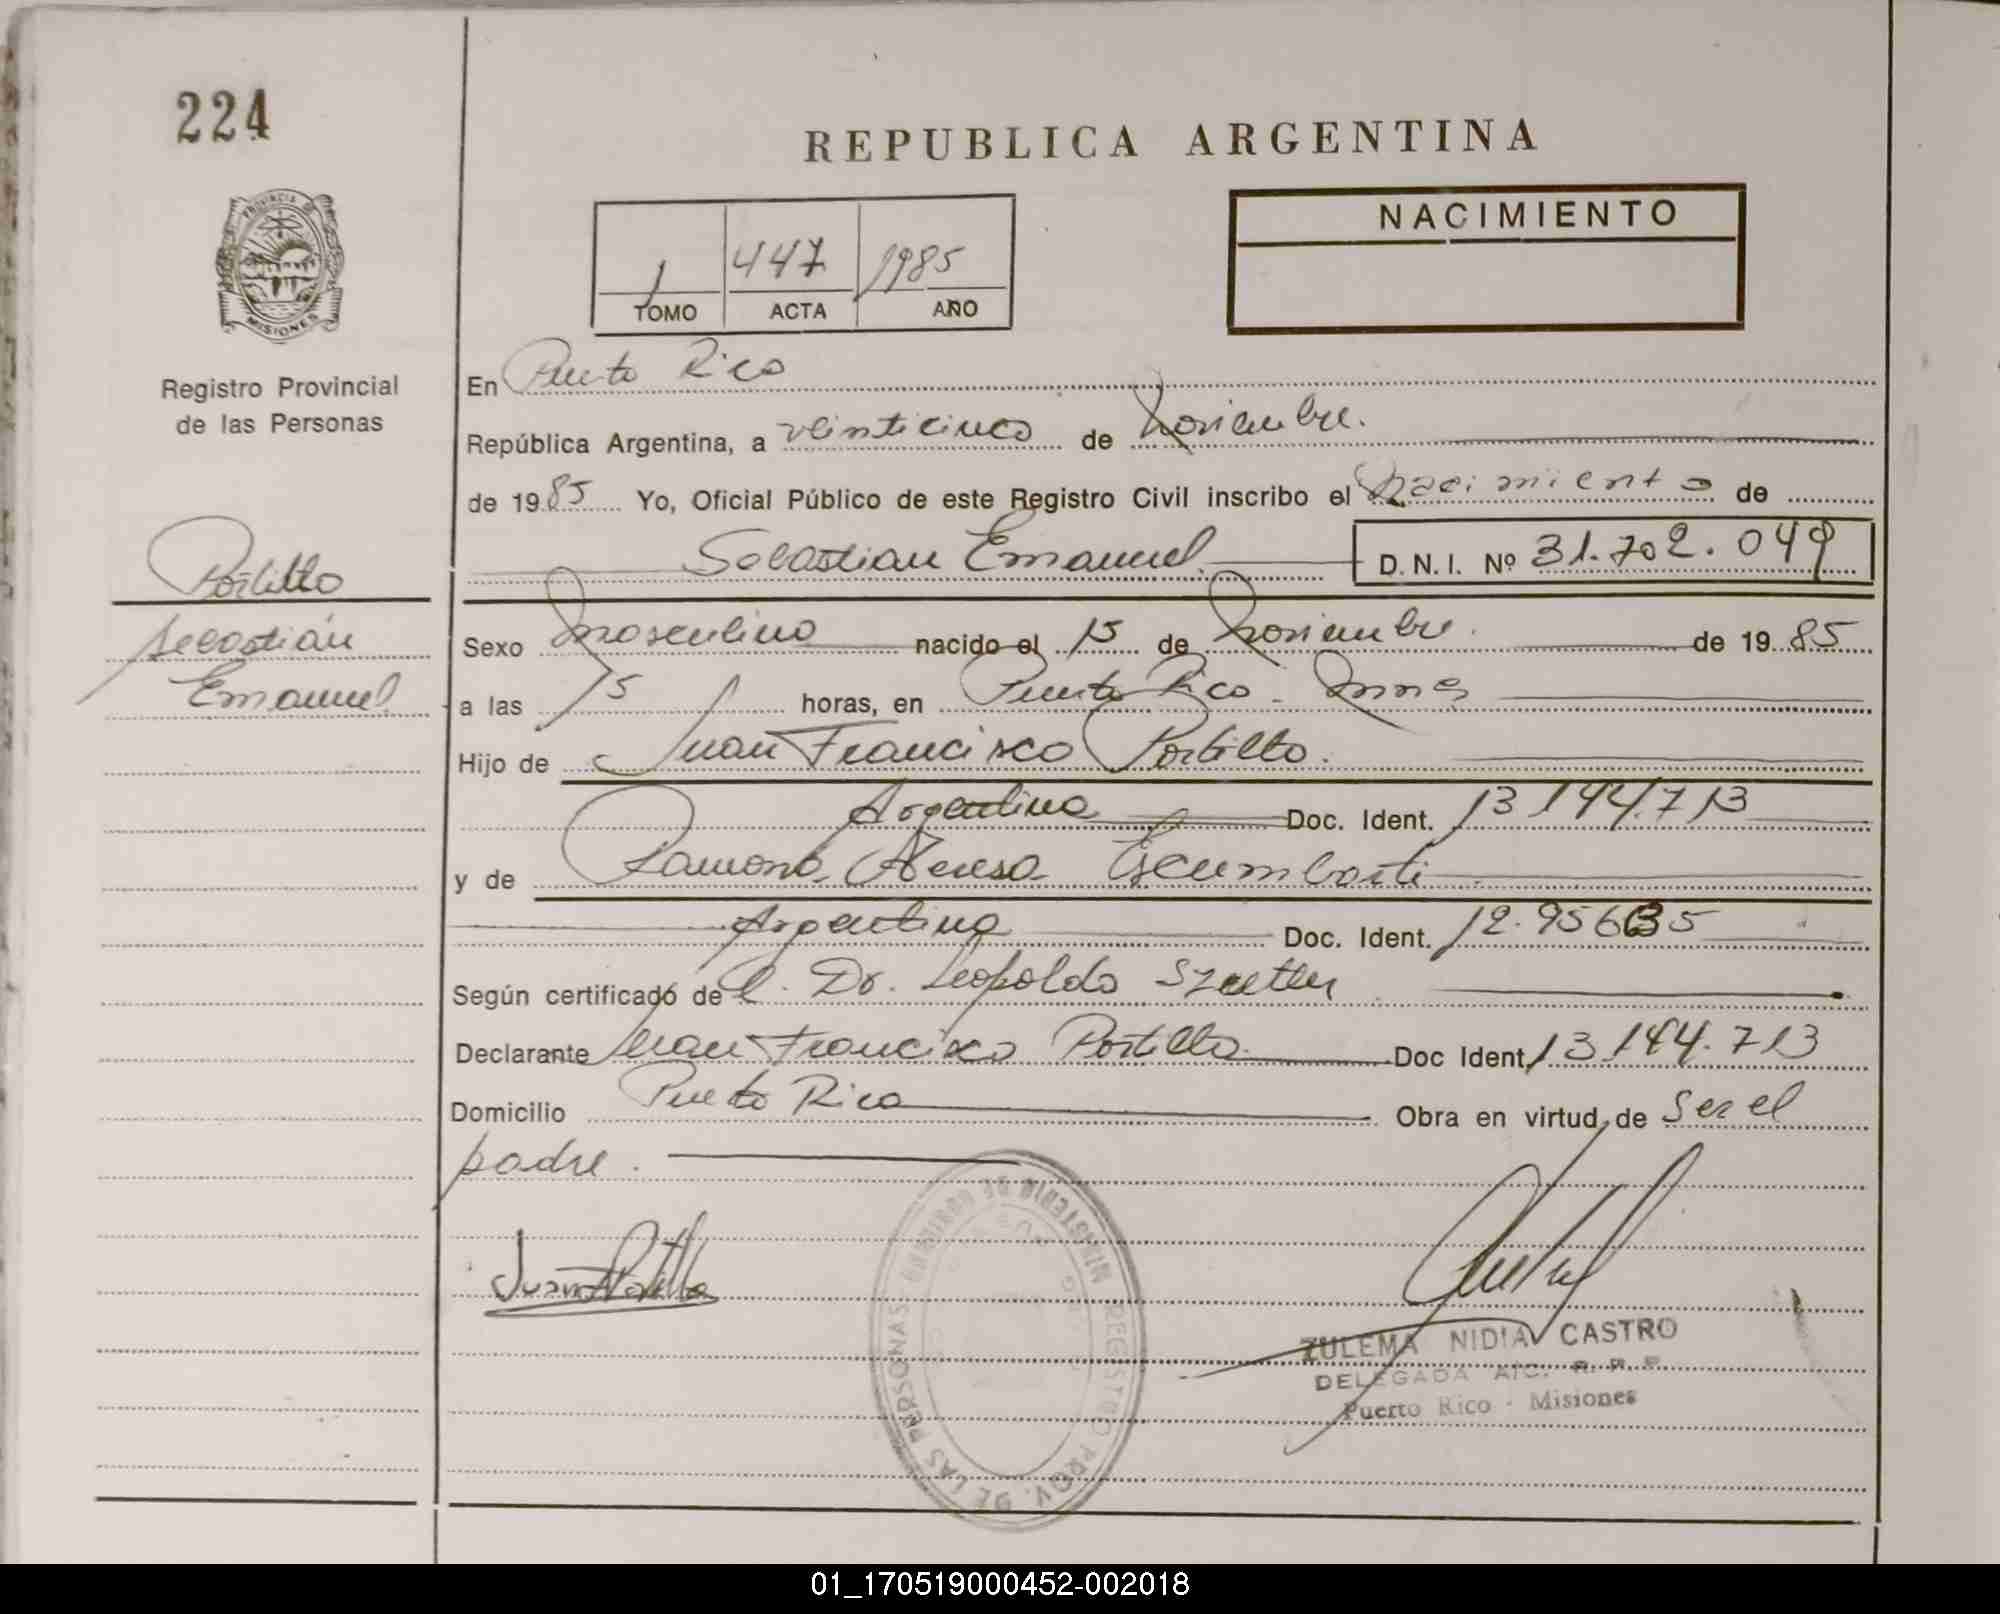 224
REPUBLICA ARGENTINA
PROVINCIA DE
MISIONES
1 447 1985
TOMO ACTA AÑO
NACIMIENTO
Registro Provincial
de las Personas
Portillo
Sebastián
Emanuel
En Puerto Rico
República Argentina, a veinticinco de Noviembre.
de 1985 Yo, Oficial Público de este Registro Civil inscribo el nacimiento de
Sebastian Emanuel. D. N. I. Nº 31.702.049
Sexo masculino nacido el 15 de Noviembre. de 1985
a las 15 horas, en Puerto Rico - Mnes
Hijo de Juan Francisco Portillo.
Argentina Doc. Ident. 13.144.713
y de Ramona Teresa Escumbarti
Argentina Doc. Ident. 12.956635
Según certificado de el. Dr. Leopoldo
Declarante Juan Francisco Portillo Doc Ident. 13.144.713
Domicilio Puerto Rico Obra en virtud de ser el
padre.
Juan Portillo
MINISTERIO DE GOBIERNO
REGISTRO PROV. DE LAS PERSONAS
ZULEMA NIDIA CASTRO
DELEGADA
Puerto Rico - Misiones
01_170519000452-002018